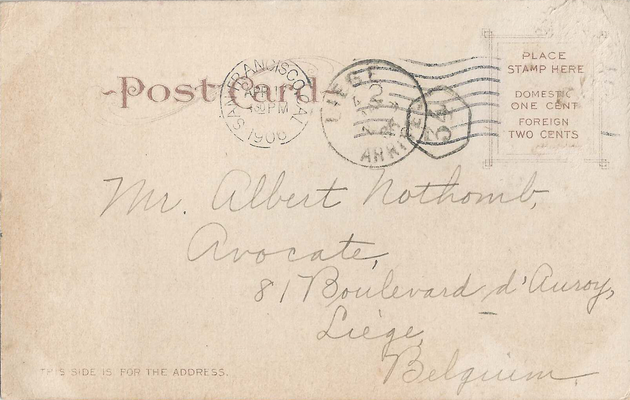 Post Card.
SAN FRANCISCO, CAL.
APR
PM
1906
LIEGE
ARRIVEE
PLACE
STAMP HERE
DOMESTIC
ONE CENT
FOREIGN
TWO CENTS
Mr. Albert Nothomb,
Avocate,
81 Boulevard d'Avroy,
Liége,
Belgium.
THIS SIDE IS FOR THE ADDRESS.